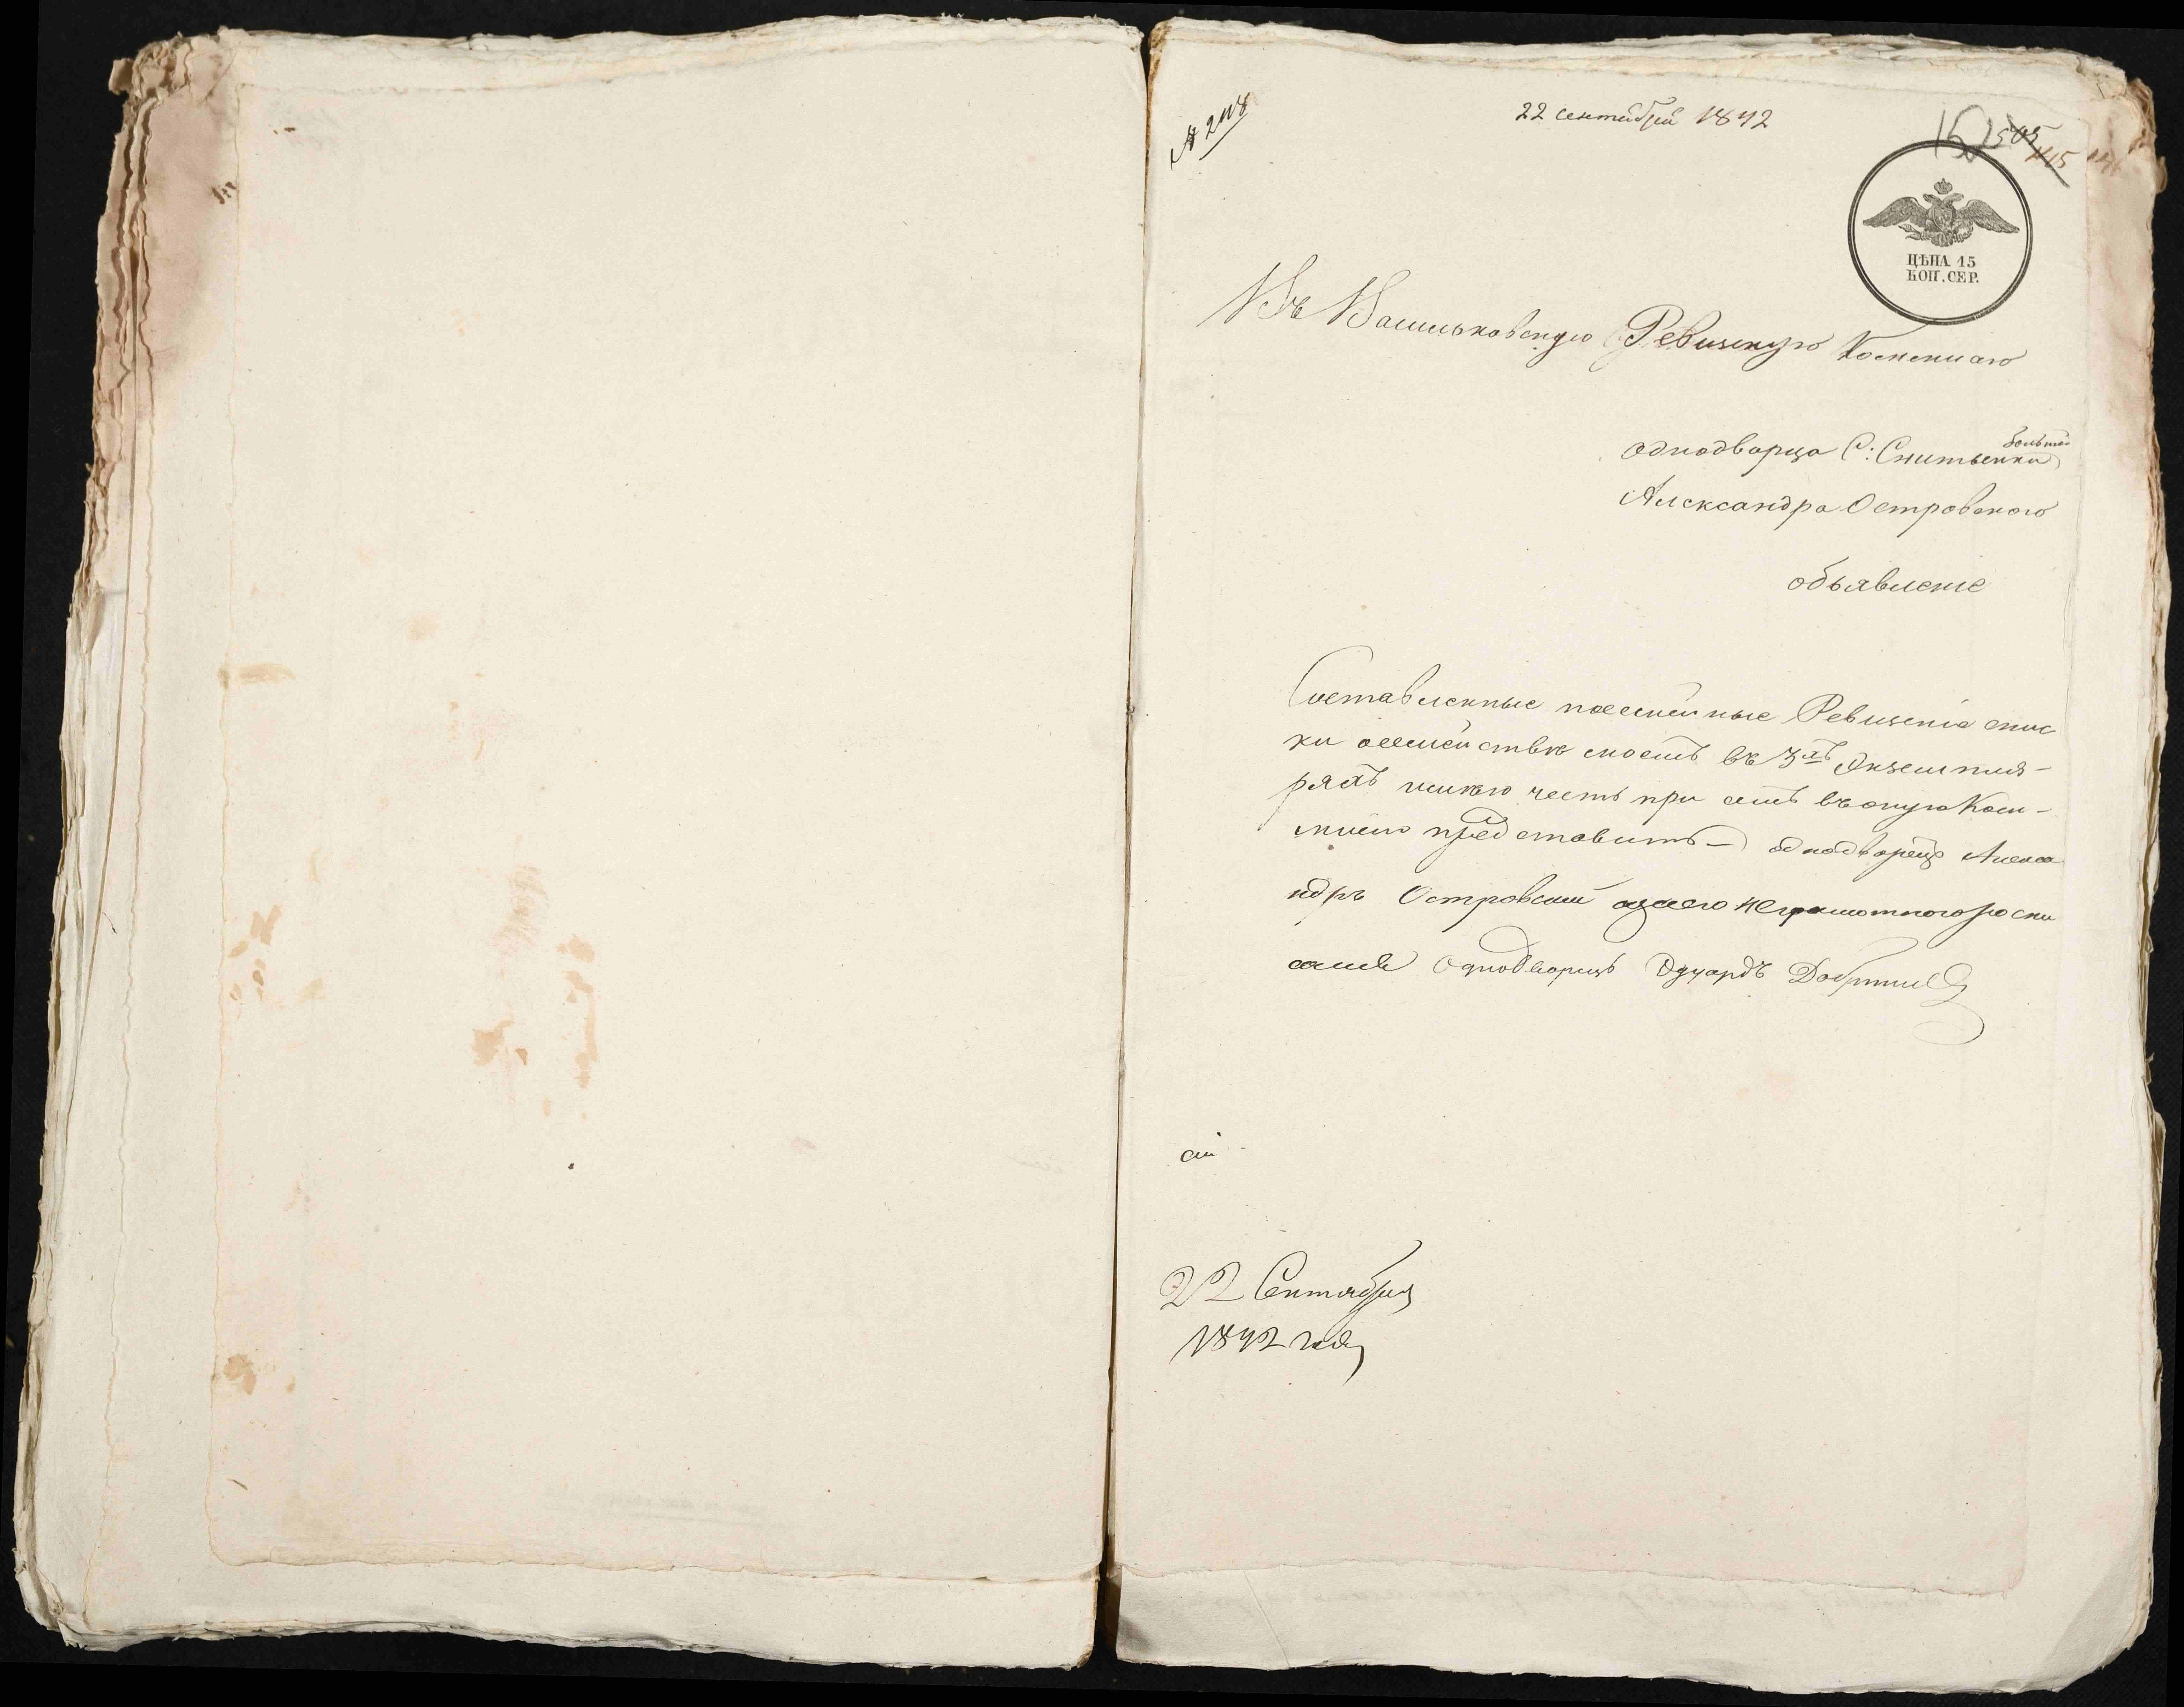 22 сентября 1842
ЦѢНА 15
КОП. СЕР.
Въ Васильковскую Ревизскую Коммисію
однодворца С: Снитынки большой
Александра Островского
объявленіе
Составленные посемейные Ревизскіе спис
ки осемействѣ моемъ въ 3хъ Экземпля-
ряхъ имѣю честь при семъ въ оную Ком-
мисію представить — однодворецъ Алекса
ндръ Островскій азаего неграмотного роспи
сался Однодворецъ Эдуардъ
22 Сентября
1842 года